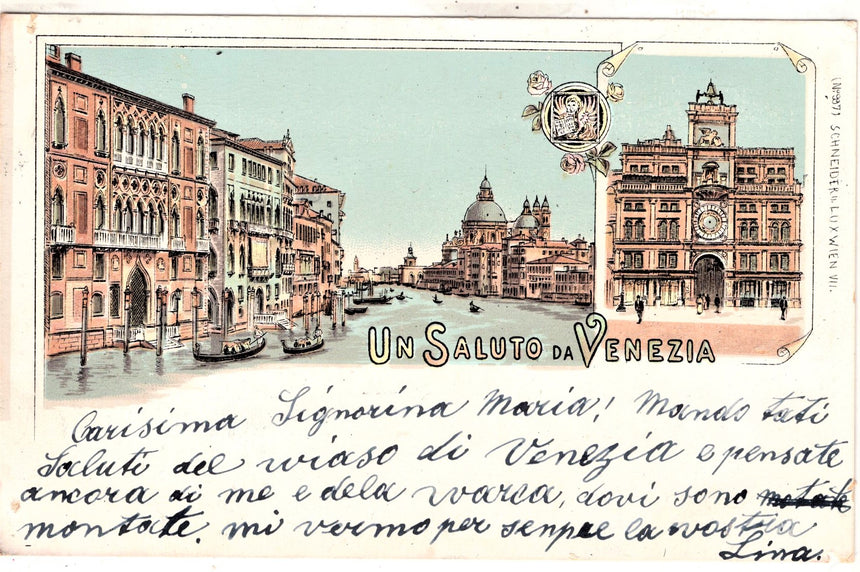 UN SALUTO DA VENEZIA
(No 987) SCHNEIDER & LUX WIEN VIII.
Carisima Signorina Maria! Mando tati
Saluti del wiaso di Venezia e pensate
ancora di me e dela warca, dovi sono
montate. mi vermo per senpre la vostra
Lina.